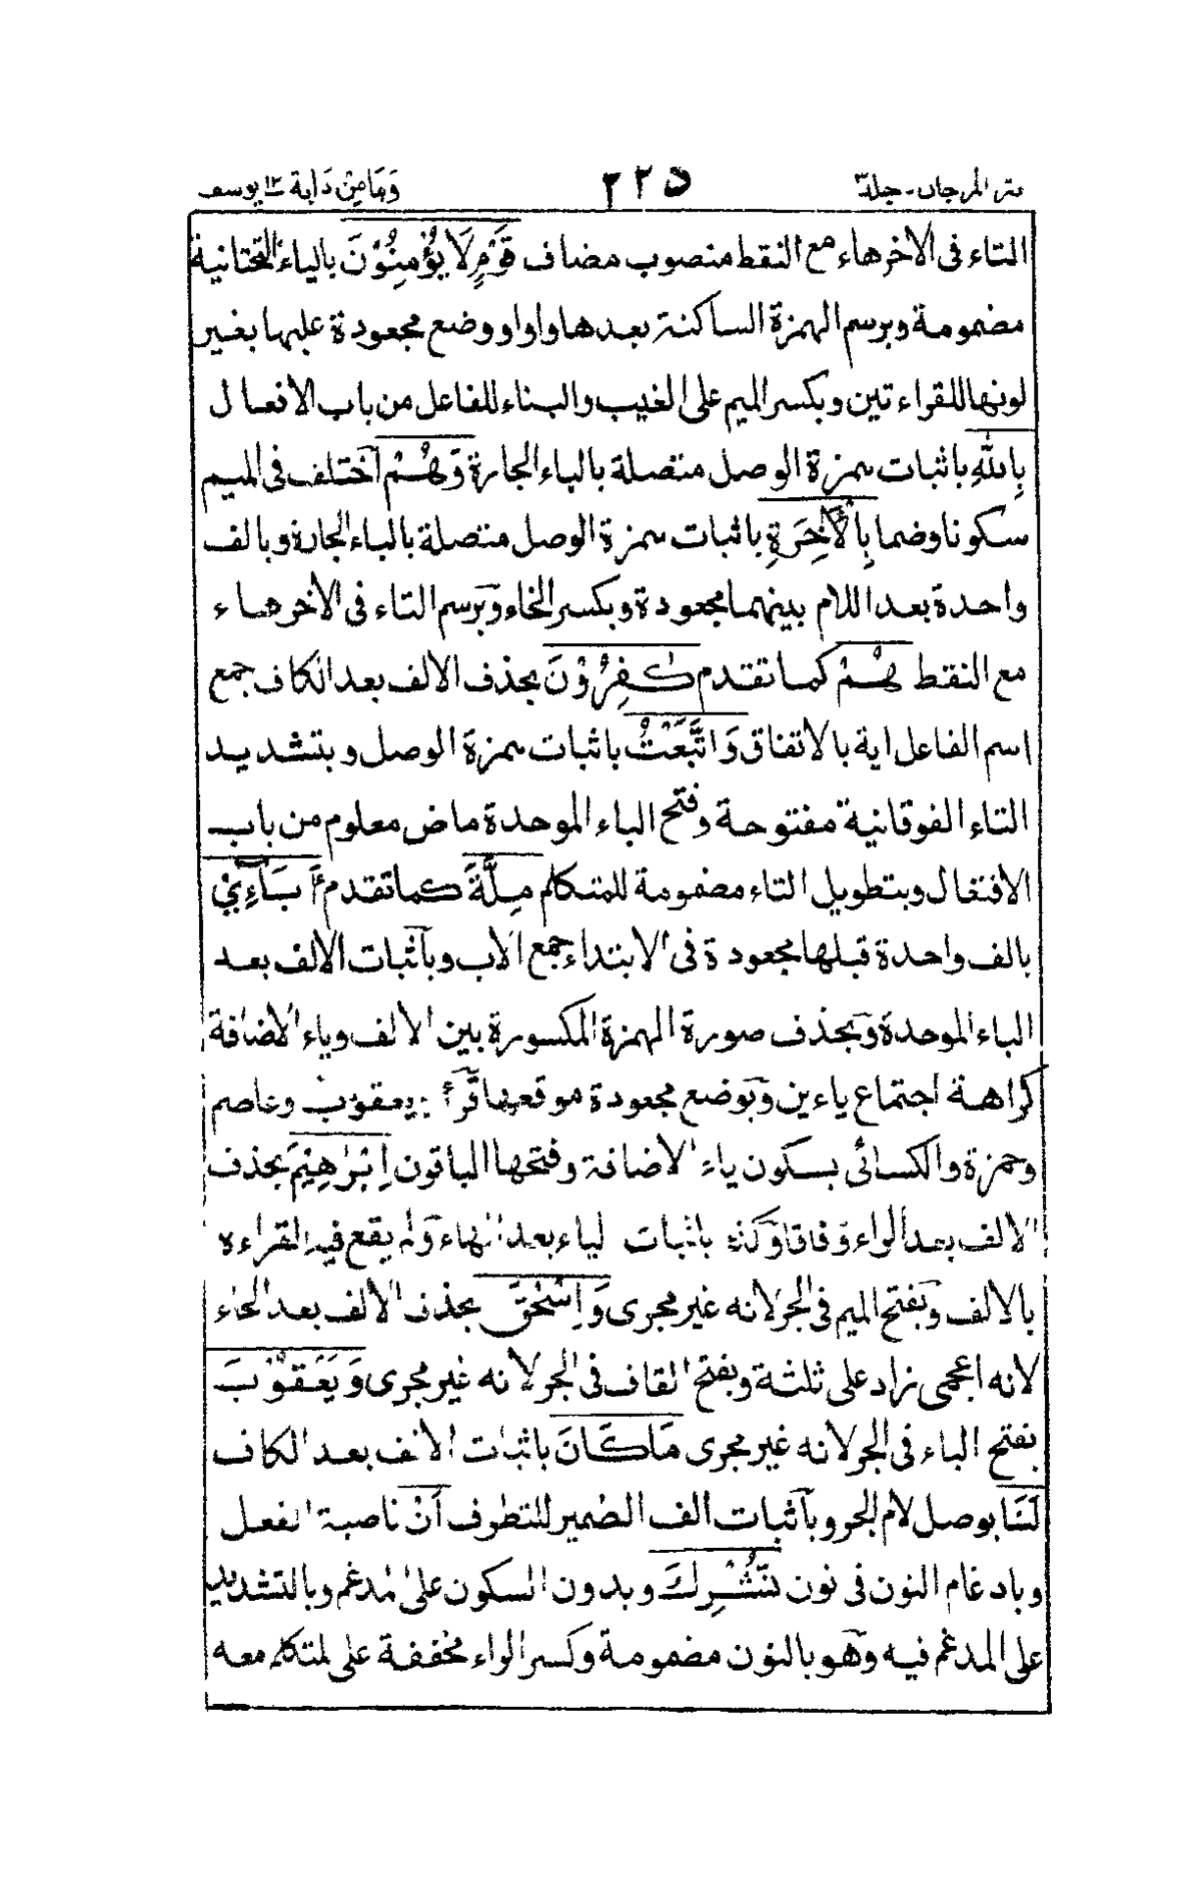 نثر المرجان - جلد ٣ ٢٢٥ وَمَا مِنْ دَابة ١٢ يوسف
التاء فى الاخر هاء مع النقط منصوب مضاف قَوْمٍ لَا يُؤْمِنُوْنَ بالياء التحتانية
مضمومة وبرسم الهمزة الساكنة بعدها واوا ووضع مجعودة عليها بغير
لونها للقراءتين وبكسر الميم على الغيب والبناء للفاعل من باب الافعال
بِاللهِ باثبات همزة الوصل متصلة بالباء الجارة وَهُمْ اختلف فى الميم
سكونا وضما بِالْاٰخِرَةِ باثبات همزة الوصل متصلة بالباء الجارة وبالف
واحدة بعد اللام بينهما مجعودة وبكسر الخاء وبرسم التاء فى الاخر هاء
مع النقط هُمْ كما تقدم كٰفِرُوْنَ بحذف الالف بعد الكاف جمع
اسم الفاعل اية بالاتفاق وَاتَّبَعْتُ باثبات همزة الوصل وبتشديد
التاء الفوقانية مفتوحة وفتح الباء الموحدة ماض معلوم من باب
الافتعال وبتطويل التاء مضمومة للمتكلم مِلَّةَ كما تقدم اٰبَآءِيْ
بالف واحدة قبلها مجعودة فى الابتداء جمع الاب وباثبات الالف بعد
الباء الموحدة وبحذف صورة الهمزة المكسورة بين الالف وياء الاضافة
كراهة اجتماع ياءين وبوضع مجعودة موقعها قرأ يعقوب وعاصم
وحمزة والكسائى بسكون ياء الاضافة وفتحها الباقون اِبْرٰهِيْمَ بحذف
الالف بعد الراء وفاقا وكذا باثبات الياء بعد الهاء ولم يقع فيه القراءة
بالالف وبفتح الميم فى الجر لانه غير مجرى وَاِسْحٰقَ بحذف الالف بعد الحاء
لانه اعجمى زاد على ثلثة وبفتح القاف فى الجر لانه غير مجرى وَيَعْقُوْبَ
بفتح الباء فى الجر لانه غير مجرى مَا كَانَ باثبات الالف بعد الكاف
لَنَا بوصل لام الجر وباثبات الف الضمير للتطرف اَنْ ناصبة الفعل
وبادغام النون فى نون نُّشْرِكَ وبدون السكون على المدغم وبالتشديد
على المدغم فيه وهو بالنون مضمومة وكسر الراء مخففة على لمتكلم معه